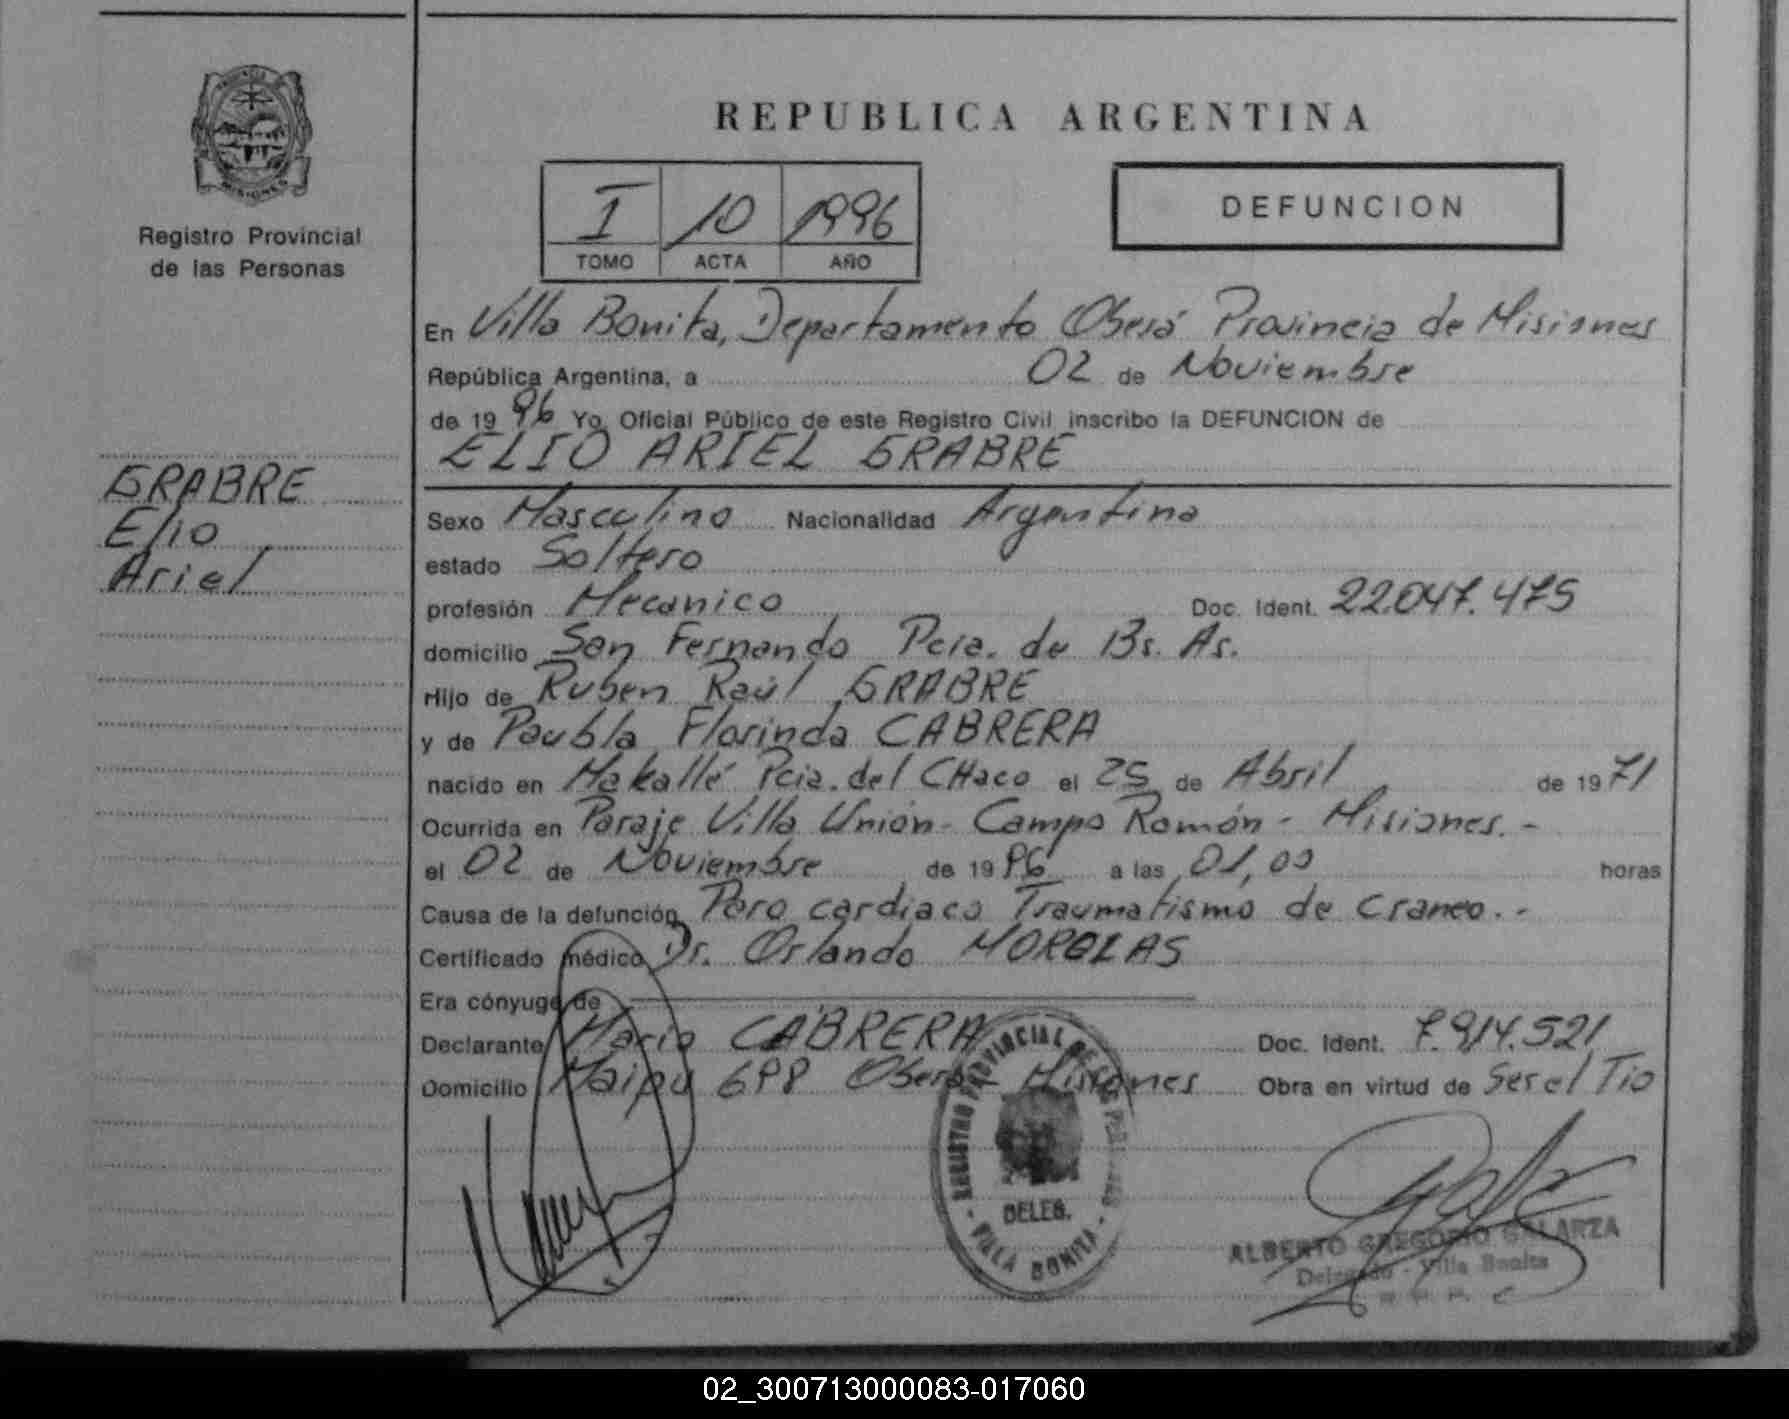 PROVINCIA DE
MISIONES
Registro Provincial
de las Personas
GRABRE
Elio
Ariel
REPUBLICA ARGENTINA
I 10 1996
TOMO ACTA AÑO
DEFUNCION
En Villa Bonita, Departamento Oberá Provincia de Misiones
República Argentina, a 02 de Noviembre
de 1996 Yo, Oficial Público de este Registro Civil inscribo la DEFUNCION de
ELIO ARIEL GRABRE
Sexo Masculino Nacionalidad Argentina
estado Soltero
profesión Mecanico Doc. Ident. 22.047.475
domicilio San Fernando Pcia. de Bs. As.
Hijo de Ruben Raúl GRABRE
y de Paubla Florinda CABRERA
nacido en Makallé Pcia. del CHaco el 25 de Abril de 1971
Ocurrida en Paraje Villa Unión - Campo Ramón - Misiones. -
el 02 de Noviembre de 1996 a las 01,00 horas
Causa de la defunción Paro cardiaco Traumatismo de craneo. -
Certificado médico Dr. Orlando
Era cónyuge de
Declarante Mario CABRERA Doc. Ident. 7.914.521
Domicilio Maipu 698 Oberá Misiones Obra en virtud de Ser el Tio
REGISTRO PROVINCIAL DE LAS PER
DELEG.
- VILLA BONITA -
ALBERTO GREGORIO GALARZA
Delegado - Villa Bonita
R. P. P.
02_300713000083-017060